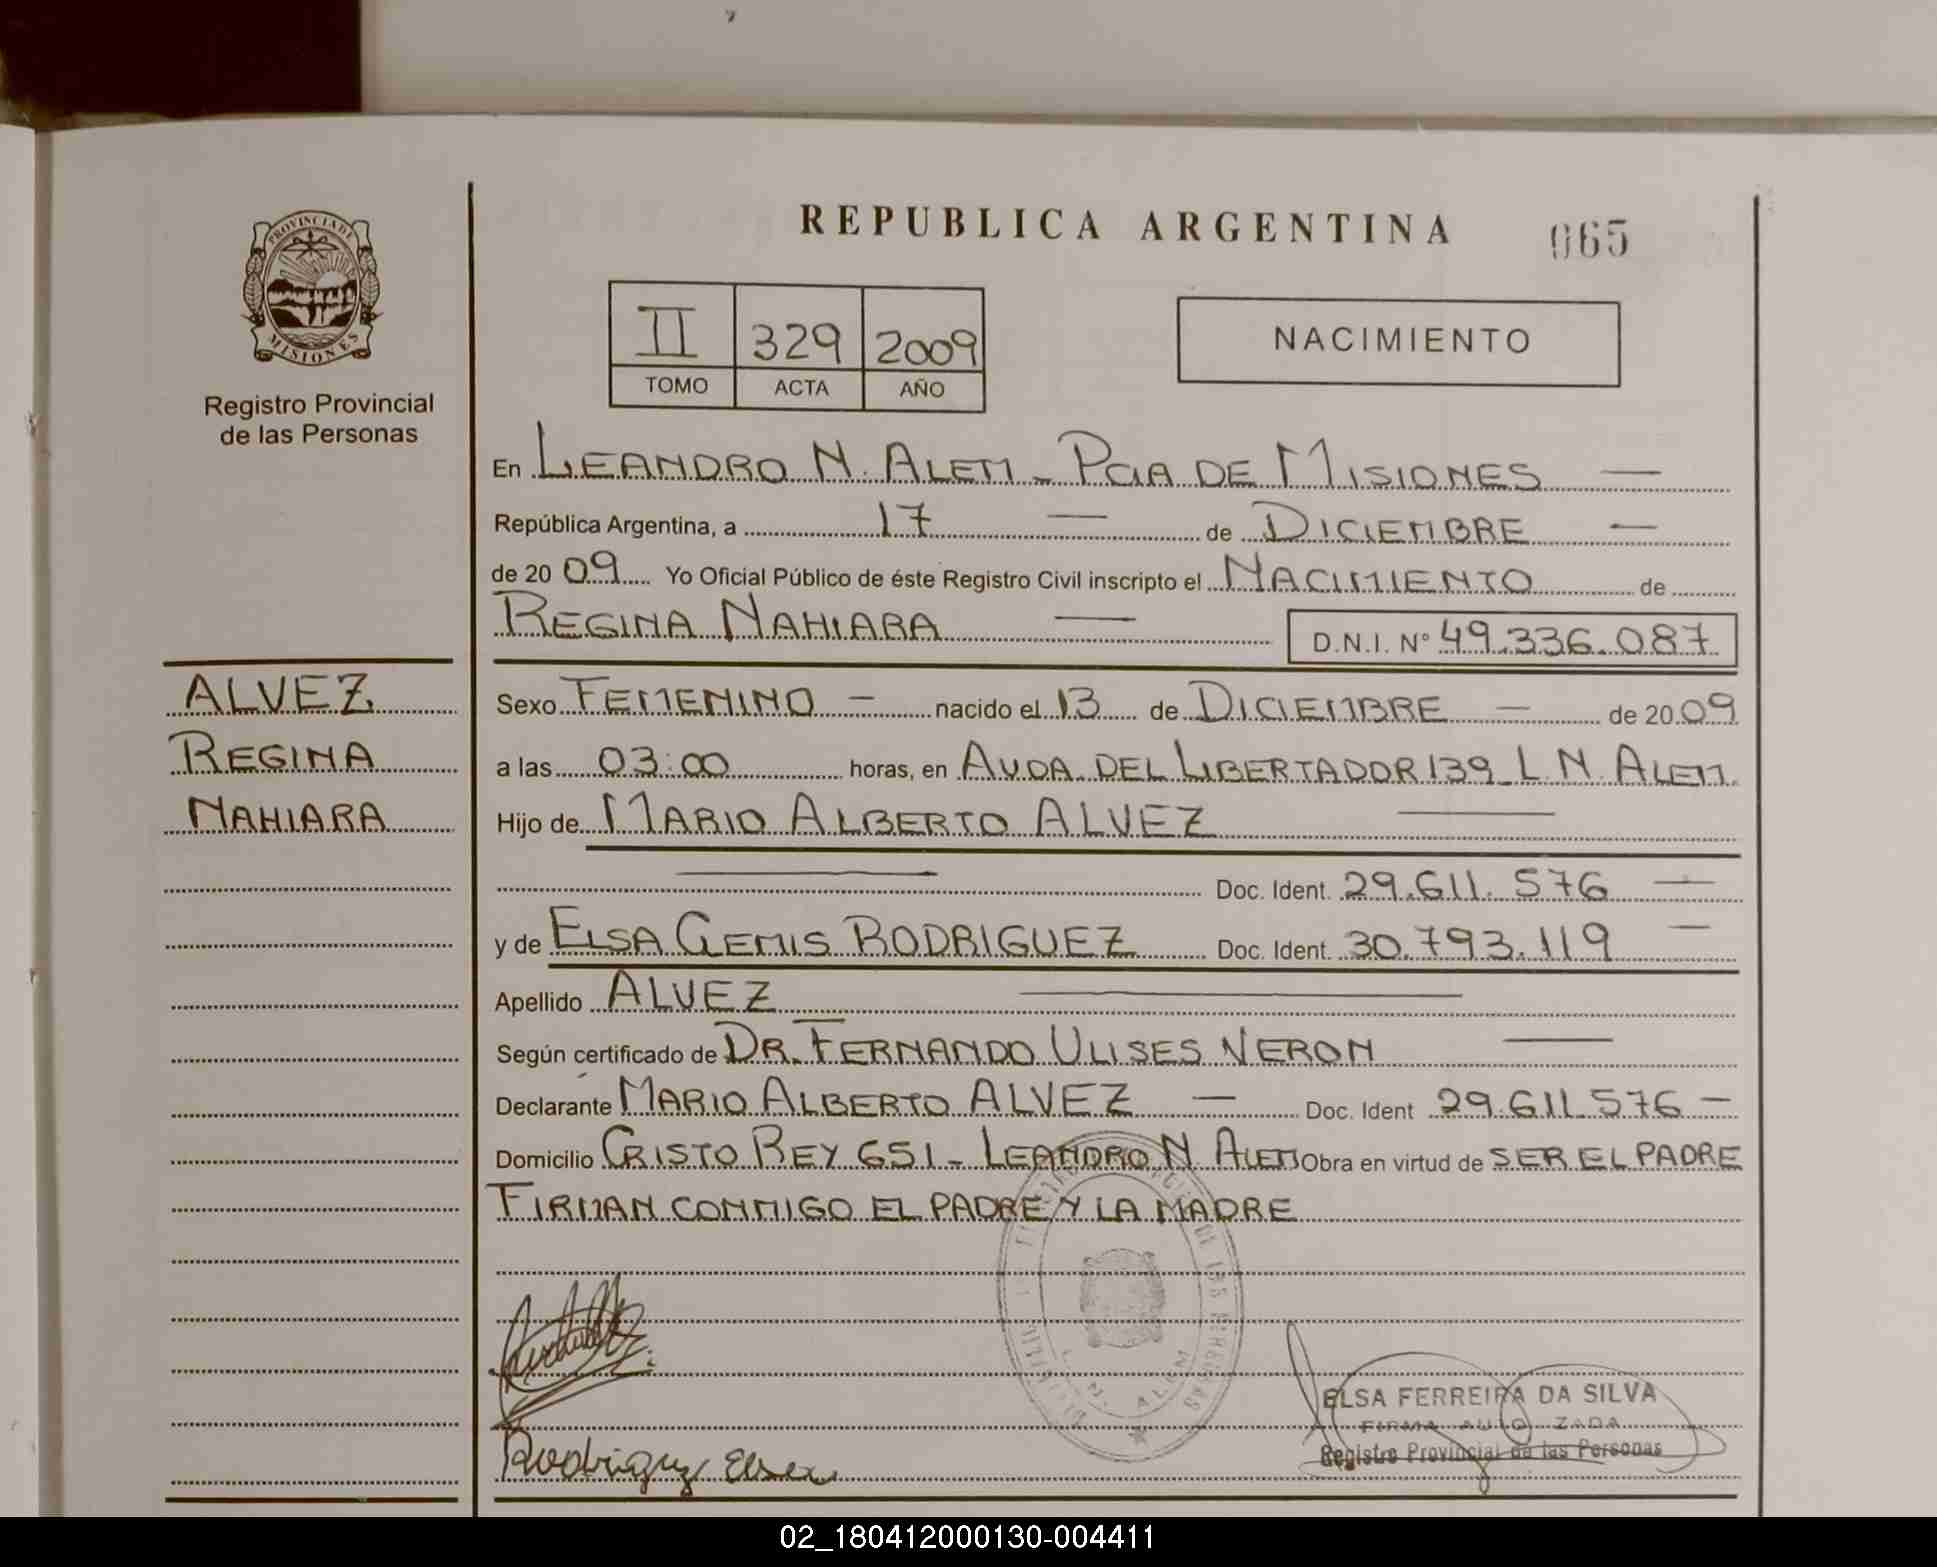 REPUBLICA ARGENTINA
065
PROVINCIA DE
MISIONES
Registro Provincial
de las Personas
II 329 2009
TOMO ACTA AÑO
NACIMIENTO
En LEANDRO N. ALEM - PCIA DE MISIONES —
República Argentina, a 17 — de DICIEMBRE —
de 20 09 Yo Oficial Público de éste Registro Civil inscripto el NACIMIENTO de
REGINA NAHIARA — D.N.I. Nº 49.336.087
ALVEZ
REGINA
NAHIARA
Sexo FEMENINO — nacido el 13 de DICIEMBRE — de 20 09
a las 03:00 horas, en AVDA DEL LIBERTADOR 139 L. N. ALEM
Hijo de MARIO ALBERTO ALVEZ —
— Doc. Ident. 29.611.576 —
y de ELSA GEMIS RODRIGUEZ Doc. Ident. 30.793.119 —
Apellido ALVEZ —
Según certificado de DR. FERNANDO ULISES NERON —
Declarante MARIO ALBERTO ALVEZ — Doc. Ident 29.611.576 —
Domicilio CRISTO REY 651 - LEANDRO N. ALEM Obra en virtud de SER EL PADRE
FIRMAN CONMIGO EL PADRE Y LA MADRE
L. N. ALEM
ELSA FERREIRA DA SILVA
FIRMA AUTO ZADA
Registro Provincial de las Personas
Rodriguez Elsa
02_180412000130-004411